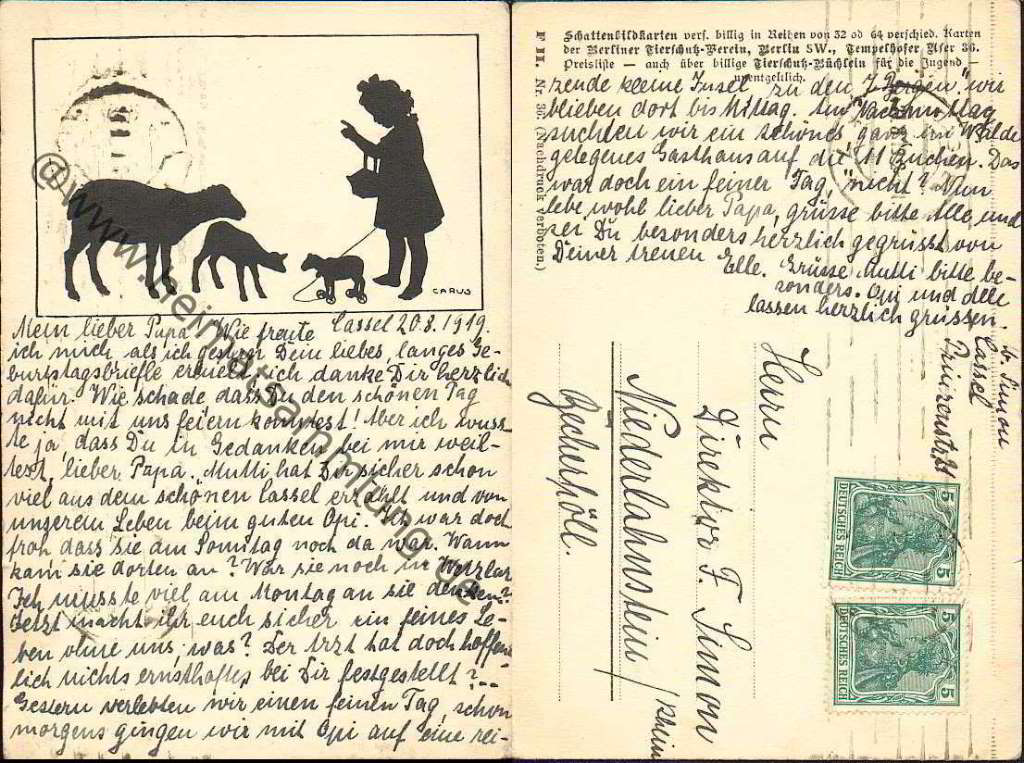 CARUS
Cassel 20.8.1919.
Mein lieber Papa! Wie freute
ich mich als ich gestern Dein liebes, langes Ge-
burtstagsbriefle erhielt, ich danke Dir herzlich
dafür. Wie schade dass Du den schönen Tag
nicht mit uns feiern konntest! Aber ich wuss-
te ja, dass Du in Gedanken bei mir weil-
test, lieber Papa. Mutti hat Dir sicher schon
viel aus dem schönen Cassel erzählt und von
unserem Leben beim guten Opi. Ich war doch
froh dass sie am Sonntag noch da war. Wann
kam sie dorten an? War sie noch in Wetzlar
Ich musste viel am Montag an sie denken?
Jetzt macht ihr euch sicher ein feines Le-
ben ohne uns, was? Der Arzt hat doch hoffent
lich nichts ernsthaftes bei Dir festgestellt? --
Gestern verlebten wir einen feinen Tag, schon
morgens gingen wir mit Opi auf eine rei-
@www.heimatsammlung.de
Schattenbildkarten vers. billig in Reihen von 32 od 64 verschied. Karten
der Berliner Tierschutz-Verein, Berlin SW., Tempelhofer Ufer 36.
Preisliste — auch über billige Tierschutz-Büchlein für die Jugend —
unentgeltlich.
F II. Nr. (Nachdruck verboten.)
zende kleine Insel "zu den 7 Bergen" wir
blieben dort bis Mittag. Am Nachmittag
suchten wir ein schönes ganz im Walde
gelegenes Gasthaus auf die 11 Buchen. Das
war doch ein feiner Tag, nicht? Nun
lebe wohl lieber Papa, grüsse bitte Alle, und
sei Du besonders herzlich gegrüsst von
Deiner treuen Elle. Grüsse Mutti bitte be-
sonders. Opi und alle
lassen herzlich grüssen.
Simon
Cassel
Herrn
Direktor F. Simon
Niederlahnstein/
DEUTSCHES REICH
5 5
DEUTSCHES REICH
5 5